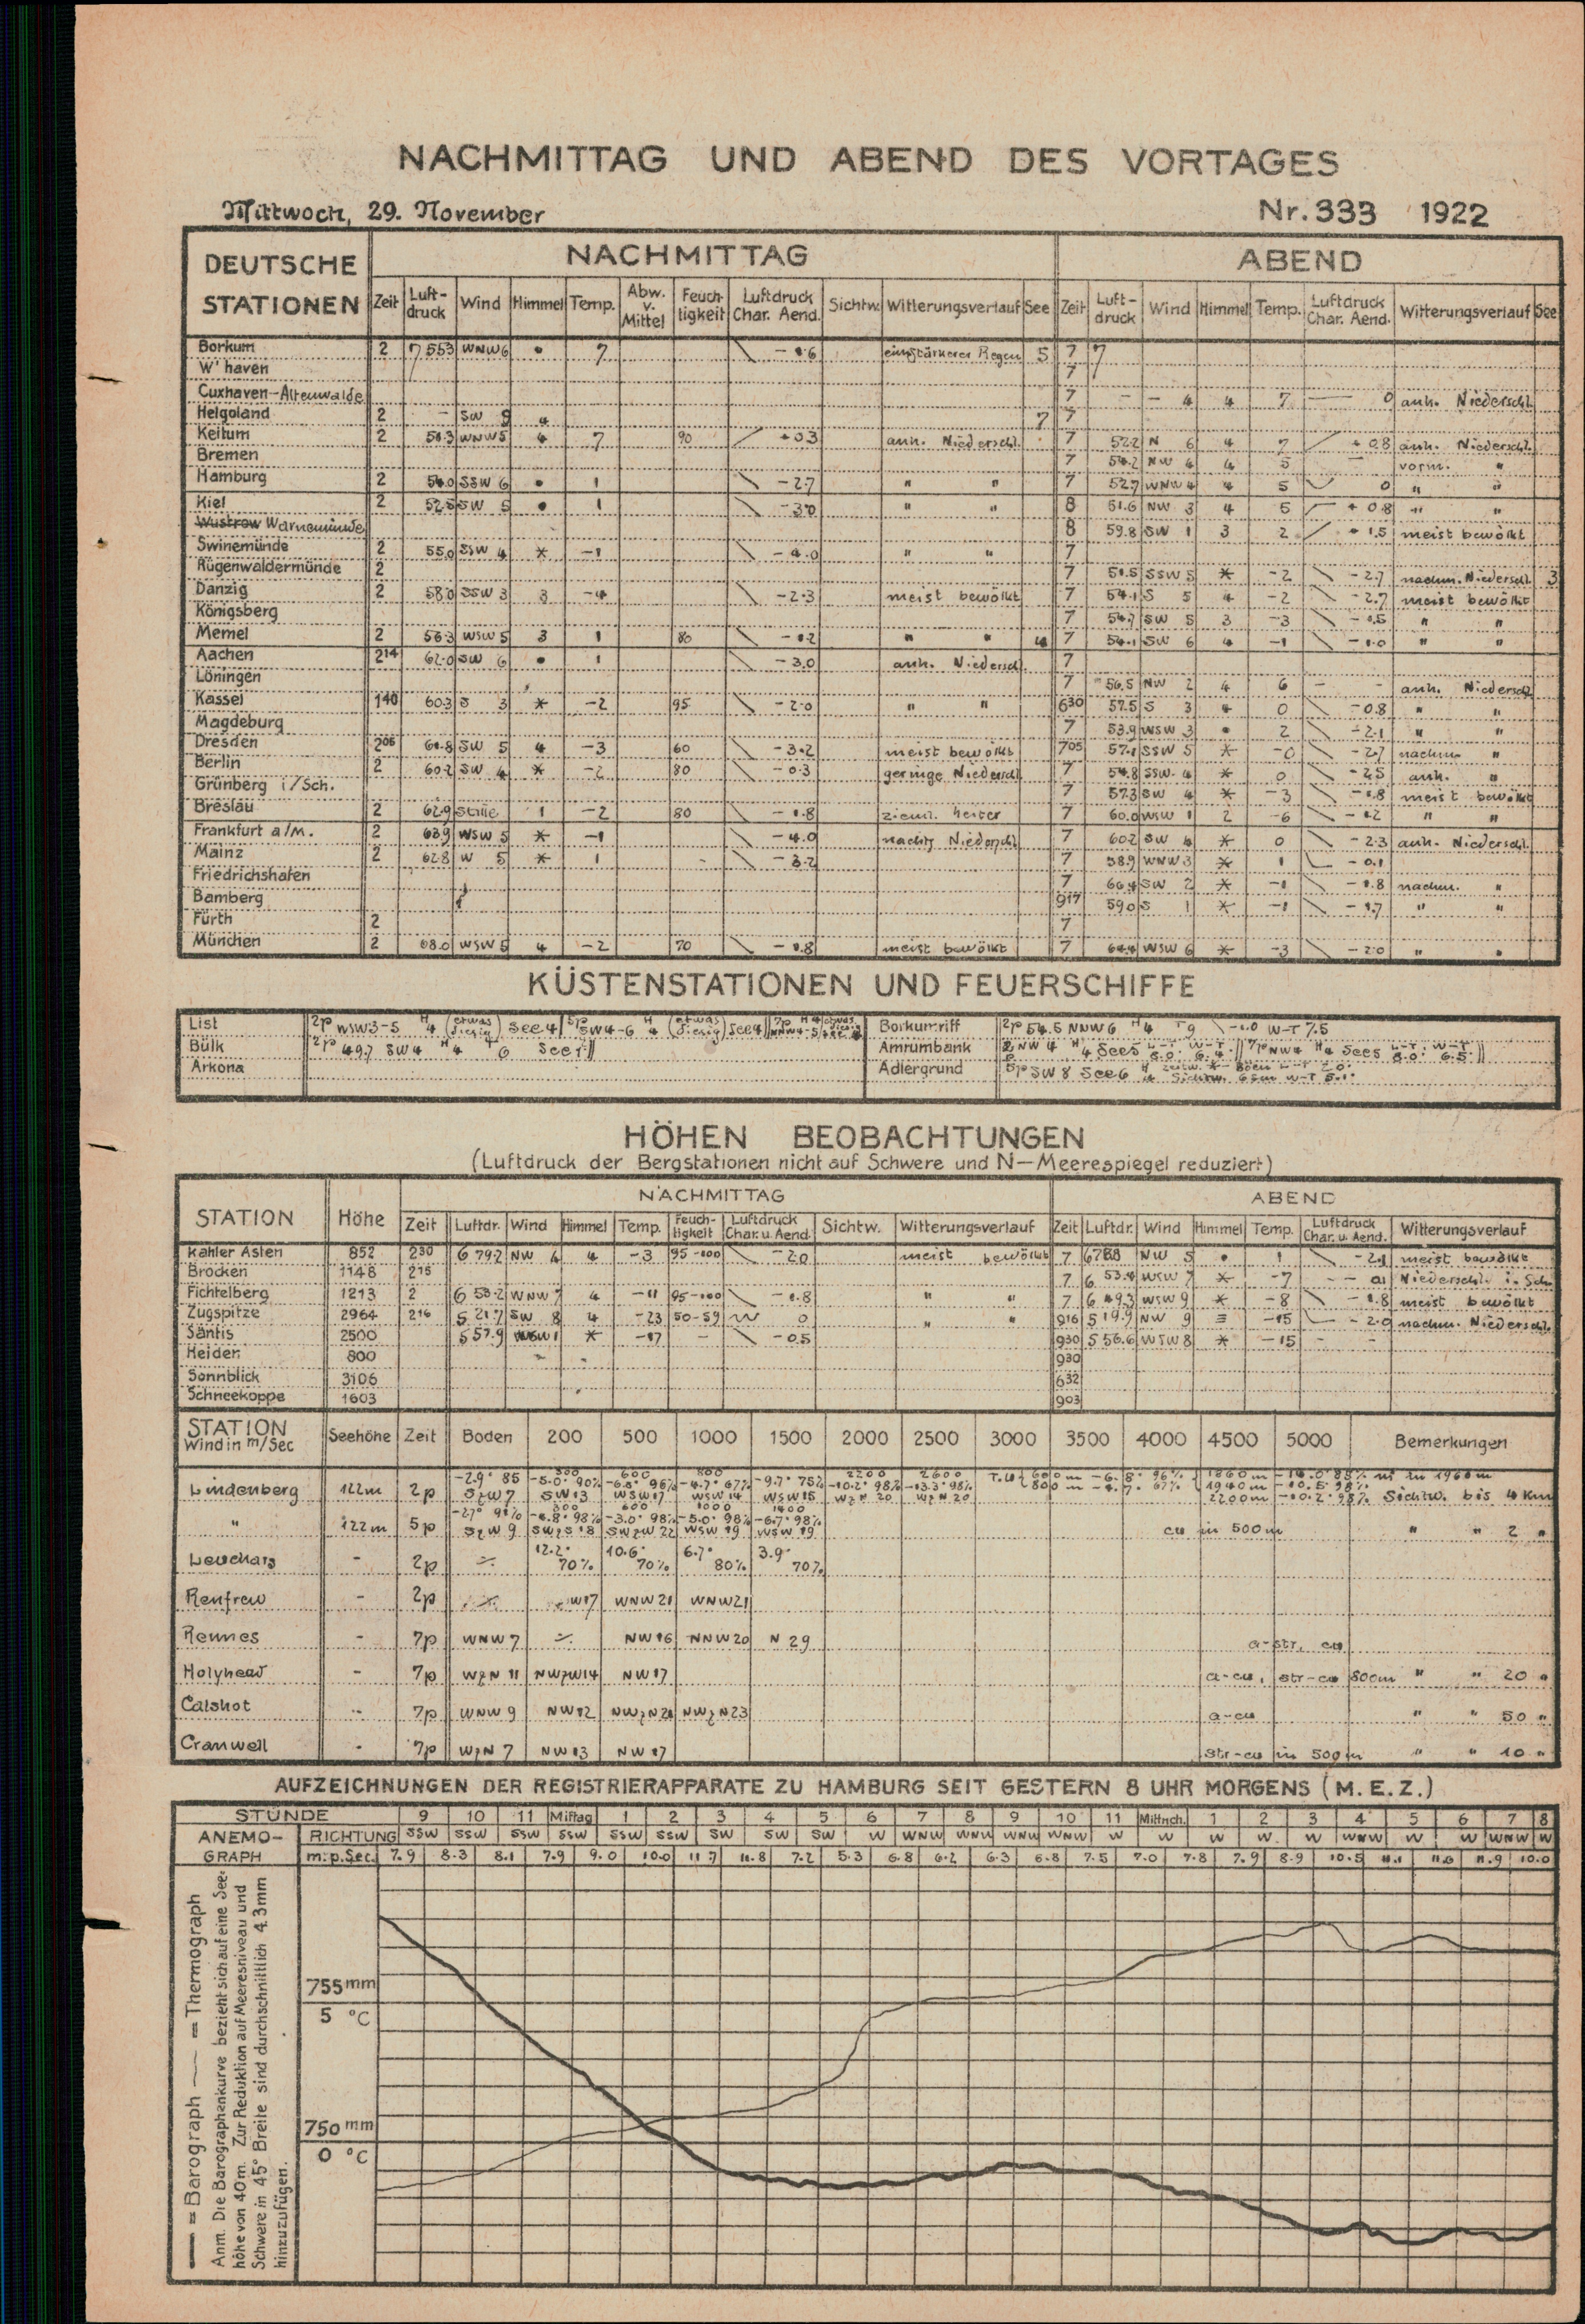 NACHMITTAG UND ABEND DES VORTAGES
Mittwoch, 29. November Nr. 333 1922
DEUTSCHE STATIONEN NACHMITTAG ABEND
Zeit Luft-druck Wind Himmel Temp. Abw. v. Mittel Feuch-tigkeit Luftdruck Char. Aend. Sichtw. Witterungsverlauf See Zeit Luft-druck Wind Himmel Temp. Luftdruck Char. Aend. Witterungsverlauf See
Borkum 2 7 553 WNW 6 • 7 5 7 7
W'haven 7
Cuxhaven-Altenwalde 7 - - 4 4 7 0 anh. Niederschl.
Helgoland 2 - SW 4 7 7
Keitum 2 WNW 5 4 7 90 +03 anh. Niederschl. 7 52.2 N 6 4 7 +0.8 anh. Niederschl.
Bremen 7 54.2 NW 4 4 5 vorm. "
Hamburg 2 54.0 SSW 6 • 1 -2.7 " " 7 52.7 WNW 4 4 5 0 " "
Kiel 2 52.5 SW 5 • 1 -3.0 " " 8 51.6 NW 3 4 5 +0.8 " "
Wustrow Warnemünde 8 59.8 SW 1 3 2 +1.5 meist bewölkt
Swinemünde 2 55.0 SSW 4 * -1 -4.0 " " 7
Rügenwaldermünde 2 7 51.5 SSW 5 * -2 -2.7 nachm. Niederschl. 3
Danzig 2 58.0 SSW 3 3 -4 -2.3 meist bewölkt 7 54.1 S 5 4 -2 -2.7 meist bewölkt
Königsberg 7 54.7 SW 5 3 -3 " "
Memel 2 56.3 WSW 5 3 1 80 " " 4 7 54.1 SW 6 4 -1 -1.0 " "
Aachen 2 14 62.0 SW 6 • 1 -3.0 anh. Niedersch. 7
Löningen 7 56.5 NW 2 4 6 - - anh. Niedersch.
Kassel 1 40 60.3 S 3 * -2 95 -2.0 " " 6 30 57.5 S 3 4 0 -0.8 " "
Magdeburg 7 53.9 WSW 3 • 2 -2.1 " "
Dresden 2 05 61.8 SW 5 4 -3 60 -3.2 meist bewölkt 7 05 57.1 SSW 5 * -0 -2.7 nachm. "
Berlin 2 60.2 SW 4 * -2 80 -0.3 geringe Niedersch. 7 54.8 SSW 4 * 0 -2.5 anh. "
Grünberg i/Sch. 7 57.3 SW 4 * -3 -1.8 meist bewölkt
Breslau 2 62.9 Stille 1 -2 80 -1.8 zieml. heiter 7 60.0 WSW 1 2 -6 " "
Frankfurt a/M. 2 63.9 WSW 5 * -1 -4.0 7 60.2 SW 4 * 0 -2.3 anh. Niederschl.
Mainz 2 62.8 W 5 * 1 - -3.2 7 58.9 WNW 3 * 1 -0.1
Friedrichshafen 7 66.4 SW 2 * -1 -1.8 nachm. "
Bamberg 9 17 59.0 S 1 * -1 -1.7 " "
Fürth 2 7
München 2 68.0 WSW 5 4 -2 70 -1.8 meist bewölkt 7 64.4 WSW 6 * -3 -2.0 " "
KÜSTENSTATIONEN UND FEUERSCHIFFE
List 2p WSW3-5 H4 (etwas diesig) See 4 5p SW4-6 4 (etwas diesig) See 4
Borkumriff 2p 54.5 NNW 6 H4 T9 -1.0 W-T 7.5
Bülk 2p 49.7 SW 4 H4 T6 See 1
Amrumbank 2p NW 4 H4 See 5 L-T 8.0° W-T 6.4° 7p NW 4 H4 See 5 L-T 8.0° W-T 6.5°
Arkona
Adlergrund 5p SW 8 See 6 H4 zeitw. * Böen L-T 2.0° Sichtw. 6 sm W-T 5.1°
HÖHEN BEOBACHTUNGEN
(Luftdruck der Bergstationen nicht auf Schwere und N-Meerespiegel reduziert)
STATION Höhe NACHMITTAG ABEND
Zeit Luftdr. Wind Himmel Temp. Feuch-tigkeit Luftdruck Char. u. Aend. Sichtw. Witterungsverlauf Zeit Luftdr. Wind Himmel Temp. Luftdruck Char. u. Aend. Witterungsverlauf
Kahler Asten 852 2 30 6 79.2 NW 6 4 -3 95-100 -2.0 meist bewölkt 7 678.8 NW 5 • 1 -2.1 meist bewölkt
Brocken 1148 2 15 7 6 53.4 WSW 7 * -7 - Niederschl. i. Sch.
Fichtelberg 1213 2 6 50.2 WNW 7 4 -11 95-100 -1.8 " " 7 6 49.3 WSW 9 * -8 -1.8 meist bewölkt
Zugspitze 2964 2 16 5 21.7 SW 8 4 -23 50-59 0 " " 9 16 5 19.9 NW 9 ≡ -15 -2.0 nachm. Niederschl.
Säntis 2500 5 57.9 WSW 1 * -17 - -0.5 9 30 5 56.6 WSW 8 * -15 - -
Heiden 800 9 30
Sonnblick 3106 6 32
Schneekoppe 1603 9 03
STATION Wind in m/Sec Seehöhe Zeit Boden 200 500 1000 1500 2000 2500 3000 3500 4000 4500 5000 Bemerkungen
300 600 800 2200 2600
Lindenberg 122m 2p -2.9° 85 SzW 7 -5.0° 90% SW 13 -6.8° 96% WSW 17 -4.7° 67% WSW 14 -9.7° 75% WSW 15 -10.2° 98% WzN 20 -13.3° 98% WzN 20
T.U. { 600 m -6.8° 96% 800 m -4.7° 67% { 1860 m 1940 m -10.5° 98% 2200 m -10.2° 98% ni in 1960 m Sichtw. bis 4 Km
300 600 1000 1400
" 122m 5p SzW 9 98% SWzS 18 -3.0° 98% SWzW 22 -5.0° 98% WSW 19 -6.7° 98% WSW 19 cu in 500 m " " 2 "
Leuchars - 2p ./. 12.2° 70% 10.6° 70% 6.7° 80% 3.9° 70%
Renfrew - 2p W 17 WNW 21 WNW 21
Rennes - 7p WNW 7 ./. NW 16 NNW 20 N 29 a-str, cu
Holyhead - 7p WzN 11 NWzW 14 NW 17 a-cu, str-cu 800m " " 20 "
Calshot - 7p WNW 9 NW 12 NWzN 21 NWzN 23 a-cu " " 50 "
Cranwell - 7p WzN 7 NW 13 NW 17 str-cu in 500 m " " 10 "
AUFZEICHNUNGEN DER REGISTRIERAPPARATE ZU HAMBURG SEIT GESTERN 8 UHR MORGENS (M.E.Z.)
STUNDE 9 10 11 Mittag 1 2 3 4 5 6 7 8 9 10 11 Mittnch. 1 2 3 4 5 6 7 8
ANEMO- RICHTUNG SSW SSW SSW SSW SSW SSW SW SW SW W WNW WNW WNW WNW W W W W W WNW W W WNW W
GRAPH m:p.Sec. 7.9 8.3 8.1 7.9 9.0 10.0 11.7 11.8 7.2 5.3 6.8 6.2 6.3 6.8 7.5 7.0 7.8 7.9 8.9 10.5 11.1 11.6 11.9 10.0
— = Barograph — = Thermograph
Anm. Die Barographenkurve bezieht sich auf eine See-
höhe von 40 m. Zur Reduktion auf Meeresniveau und
Schwere in 45° Breite sind durchschnittlich 4.3 mm
hinzuzufügen.
755 mm
5 °C
750 mm
0 °C